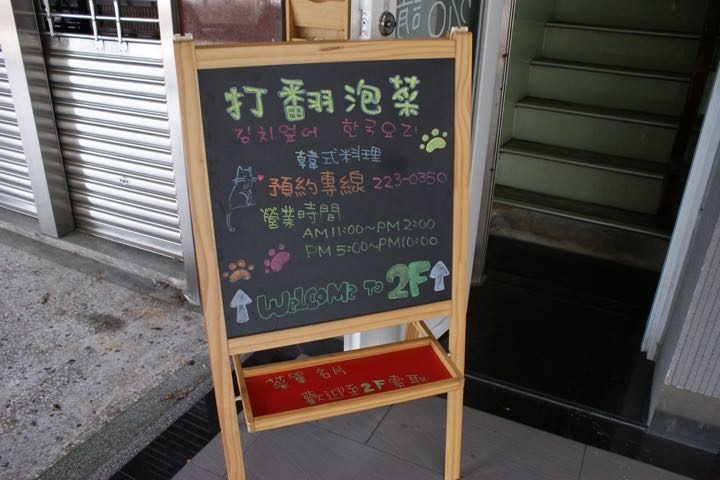 打翻泡菜
김치엎어 한국요리
韓式料理
預約專線 223-0350
營業時間
AM11:00~PM2:00
PM5:00~PM10:00
WELCOME TO 2F
菜單 名片
歡迎至2F索取